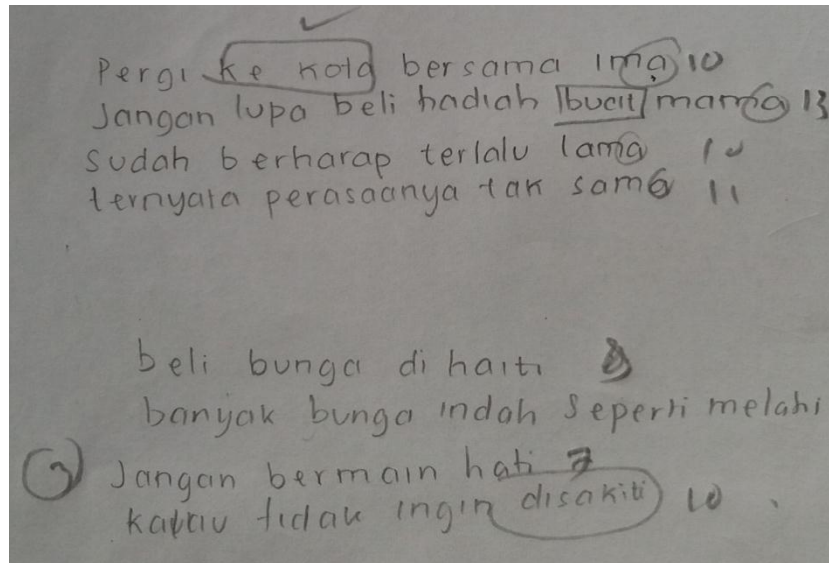 Pergi ke kota bersama ima 10
Jangan lupa beli hadiah buat mama 13
sudah berharap terlalu lama 10
ternyata perasaanya tak sama 11
beli bunga di haiti 8
banyak bunga indah seperti melati
3 Jangan bermain hati 7
kalau tidak ingin disakiti 10